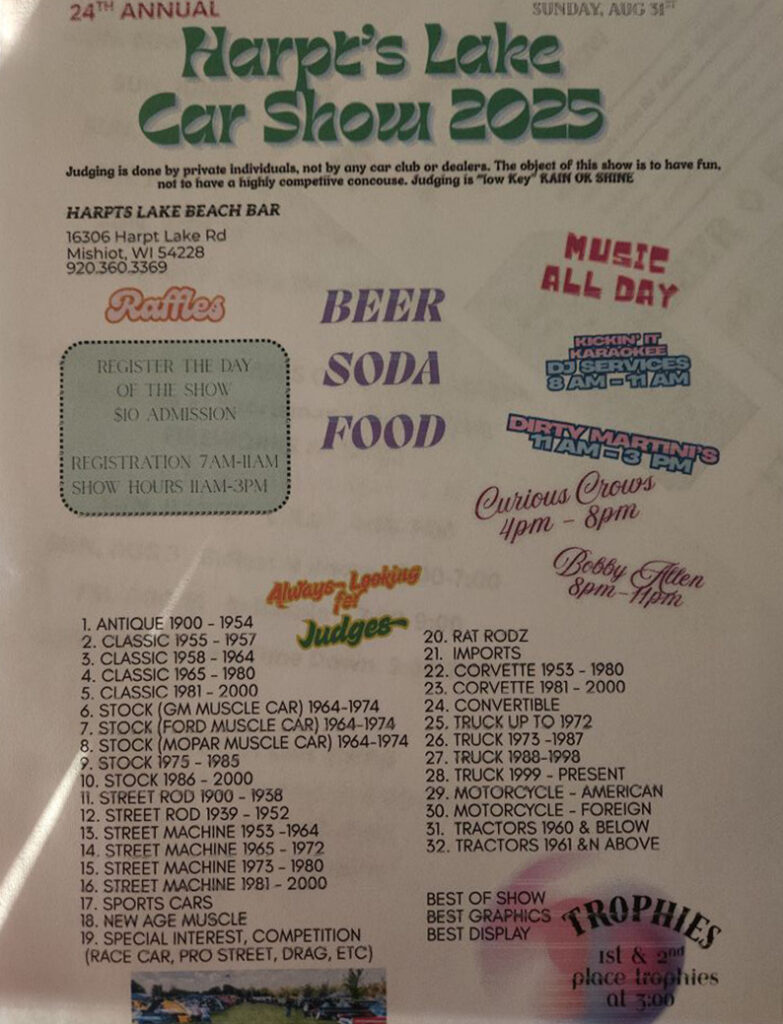 24TH ANNUAL
SUNDAY, AUG 31ST
Harpt's Lake
Car Show 2025
Judging is done by private individuals, not by any car club or dealers. The object of this show is to have fun,
not to have a highly competiive concouse. Judging is "low Key" RAIN OR SHINE
HARPTS LAKE BEACH BAR
16306 Harpt Lake Rd
Mishiot, WI 54228
920.360.3369
MUSIC
ALL DAY
Raffles
BEER
SODA
FOOD
KICKIN' IT
KARAOKEE
DJ SERVICES
8 AM - 11 AM
REGISTER THE DAY
OF THE SHOW
$10 ADMISSION
REGISTRATION 7AM-11AM
SHOW HOURS 11AM-3PM
DIRTY MARTINI'S
11 AM - 3 PM
Curious Crows
4pm - 8pm
Bobby Allen
8pm-11pm
Always Looking
for
Judges
1. ANTIQUE 1900 - 1954
2. CLASSIC 1955 - 1957
3. CLASSIC 1958 - 1964
4. CLASSIC 1965 - 1980
5. CLASSIC 1981 - 2000
6. STOCK (GM MUSCLE CAR) 1964-1974
7. STOCK (FORD MUSCLE CAR) 1964-1974
8. STOCK (MOPAR MUSCLE CAR) 1964-1974
9. STOCK 1975 - 1985
10. STOCK 1986 - 2000
11. STREET ROD 1900 - 1938
12. STREET ROD 1939 - 1952
13. STREET MACHINE 1953 -1964
14. STREET MACHINE 1965 - 1972
15. STREET MACHINE 1973 - 1980
16. STREET MACHINE 1981 - 2000
17. SPORTS CARS
18. NEW AGE MUSCLE
19. SPECIAL INTEREST, COMPETITION
(RACE CAR, PRO STREET, DRAG, ETC)
20. RAT RODZ
21. IMPORTS
22. CORVETTE 1953 - 1980
23. CORVETTE 1981 - 2000
24. CONVERTIBLE
25. TRUCK UP TO 1972
26. TRUCK 1973 -1987
27. TRUCK 1988-1998
28. TRUCK 1999 - PRESENT
29. MOTORCYCLE - AMERICAN
30. MOTORCYCLE - FOREIGN
31. TRACTORS 1960 & BELOW
32. TRACTORS 1961 &N ABOVE
BEST OF SHOW
BEST GRAPHICS
BEST DISPLAY
TROPHIES
1st & 2nd
place trophies
at 3:00